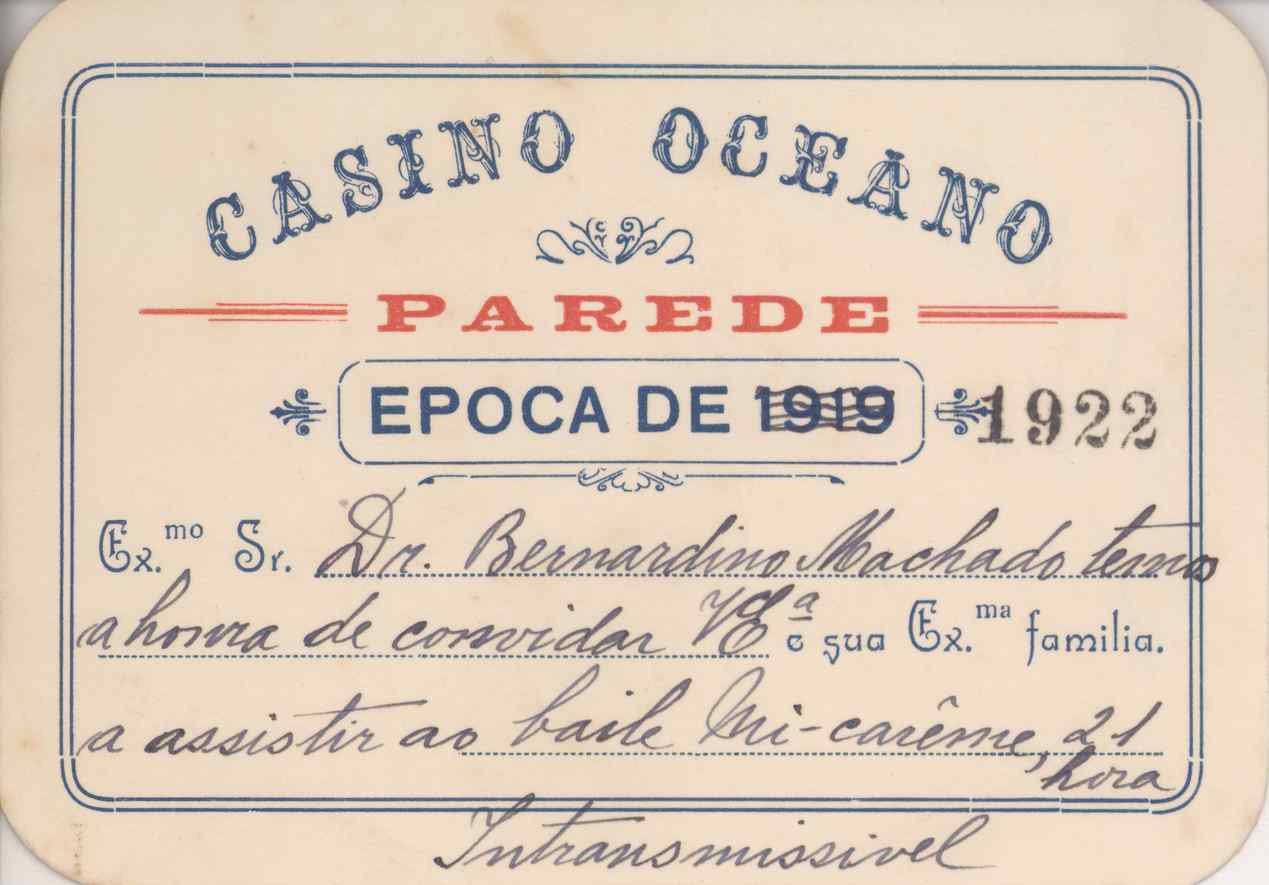 CASINO OCEANO
PAREDE
EPOCA DE 1919 1922
Ex.mo Sr. Dr. Bernardino Machado temos
a honra de convidar V Eª e sua Ex.ma familia.
a assistir ao baile Mi-carême, 21
hora
Intransmissivel